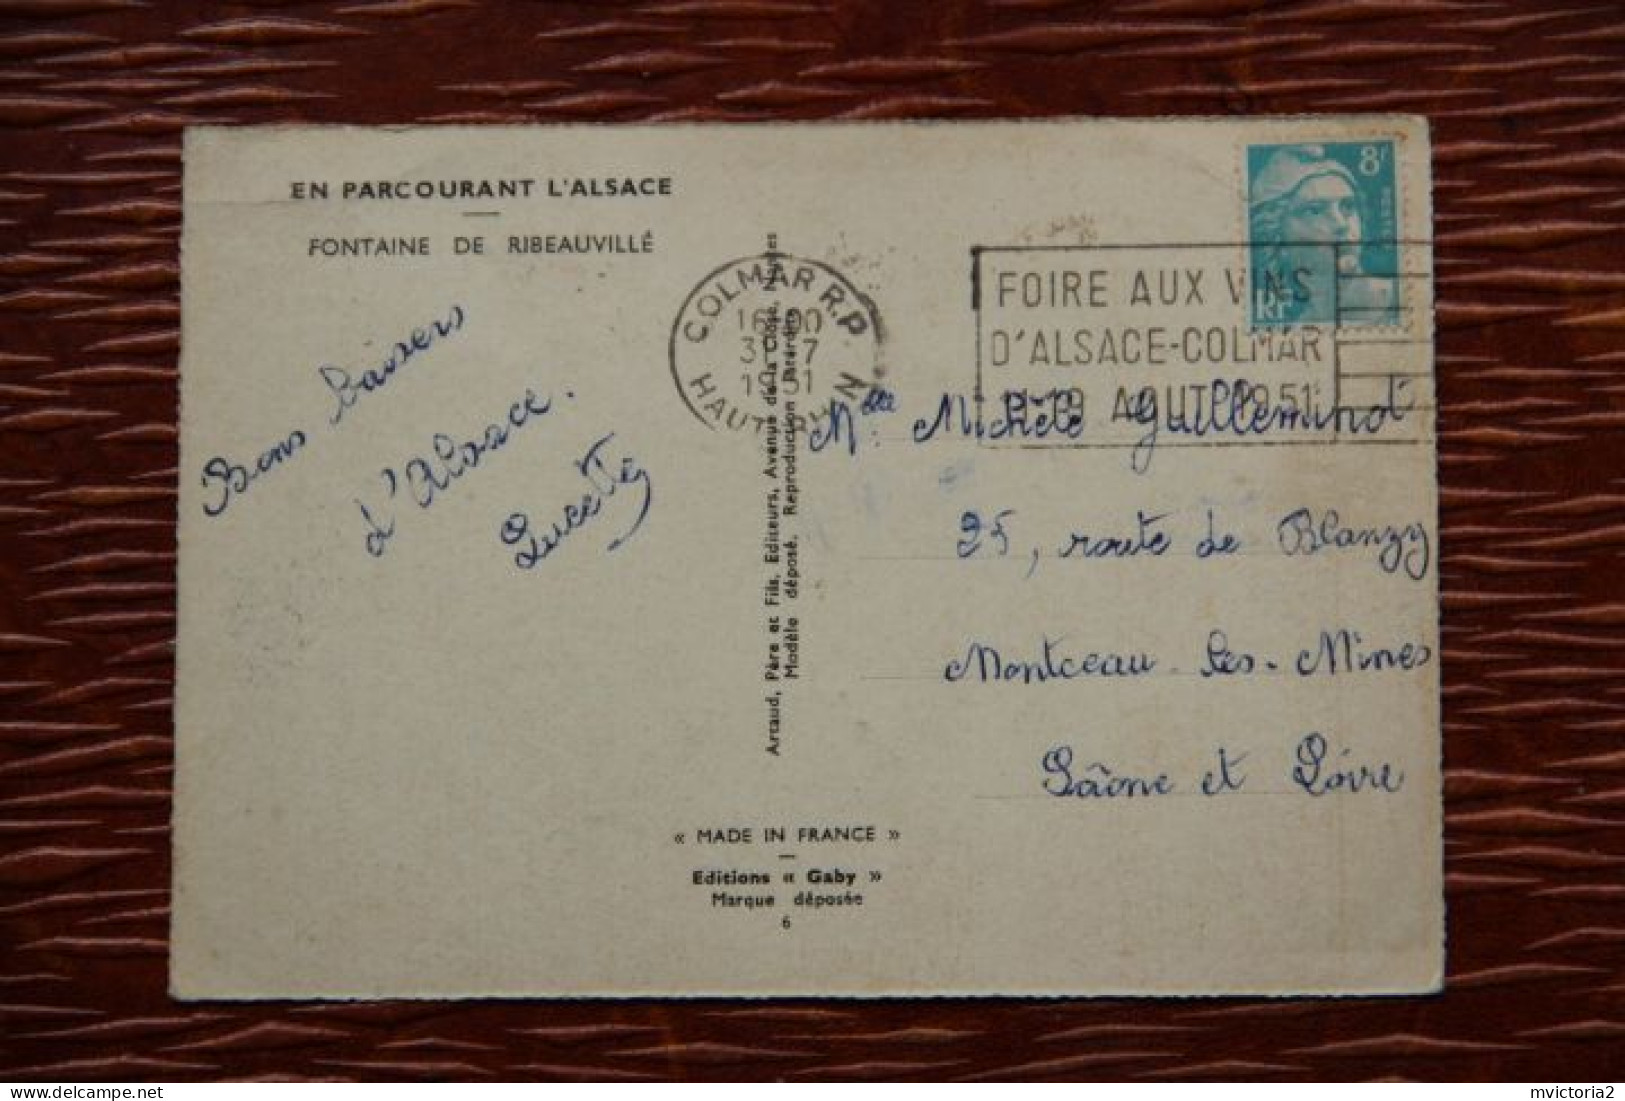 EN PARCOURANT L'ALSACE
FONTAINE DE RIBEAUVILLÉ
Bons baisers
d'Alsace.
Lucette
COLMAR R.P.
1951
HAUT-RHIN
FOIRE AUX VINS
D'ALSACE-COLMAR
19 AOUT 1951
8F
RF
Artaud, Père et Fils, Editeurs, Avenue de la Close, Nantes
Modèle déposé. Reproduction interdite
Mlle Michèle Guilleminot
25, route de Blanzy
Montceau-les-Mines
Saône et Loire
« MADE IN FRANCE »
Editions « Gaby »
Marque déposée
6
mvictoria2